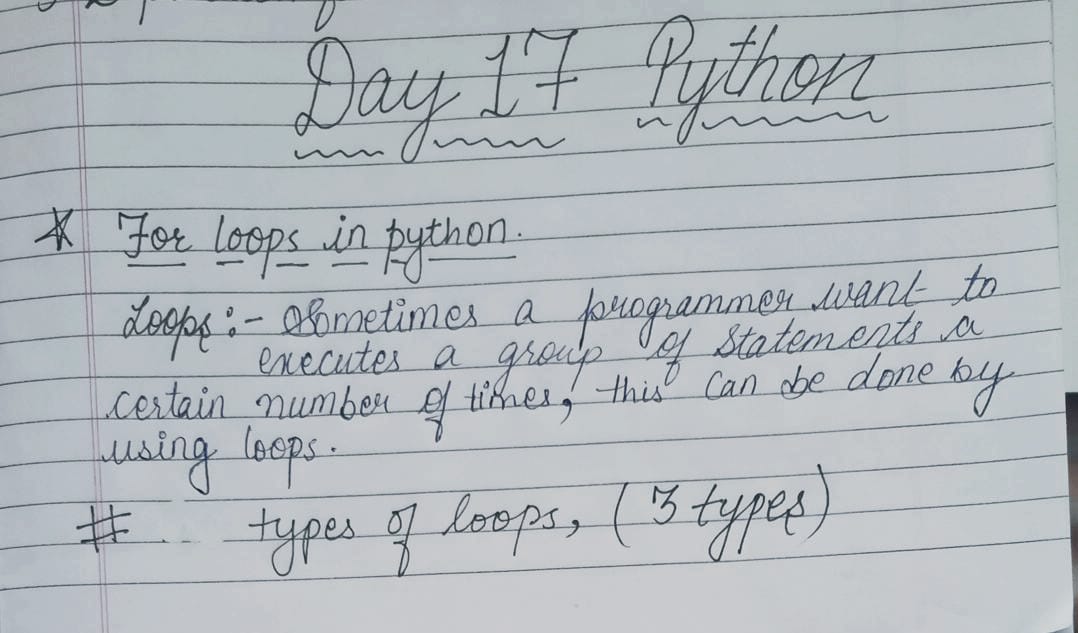 Day 17 Python
* For loops in python.
Loops :- Sometimes a programmer want to
executes a group of statements a
certain number of times, this can be done by
using loops.
# types of loops, (3 types)